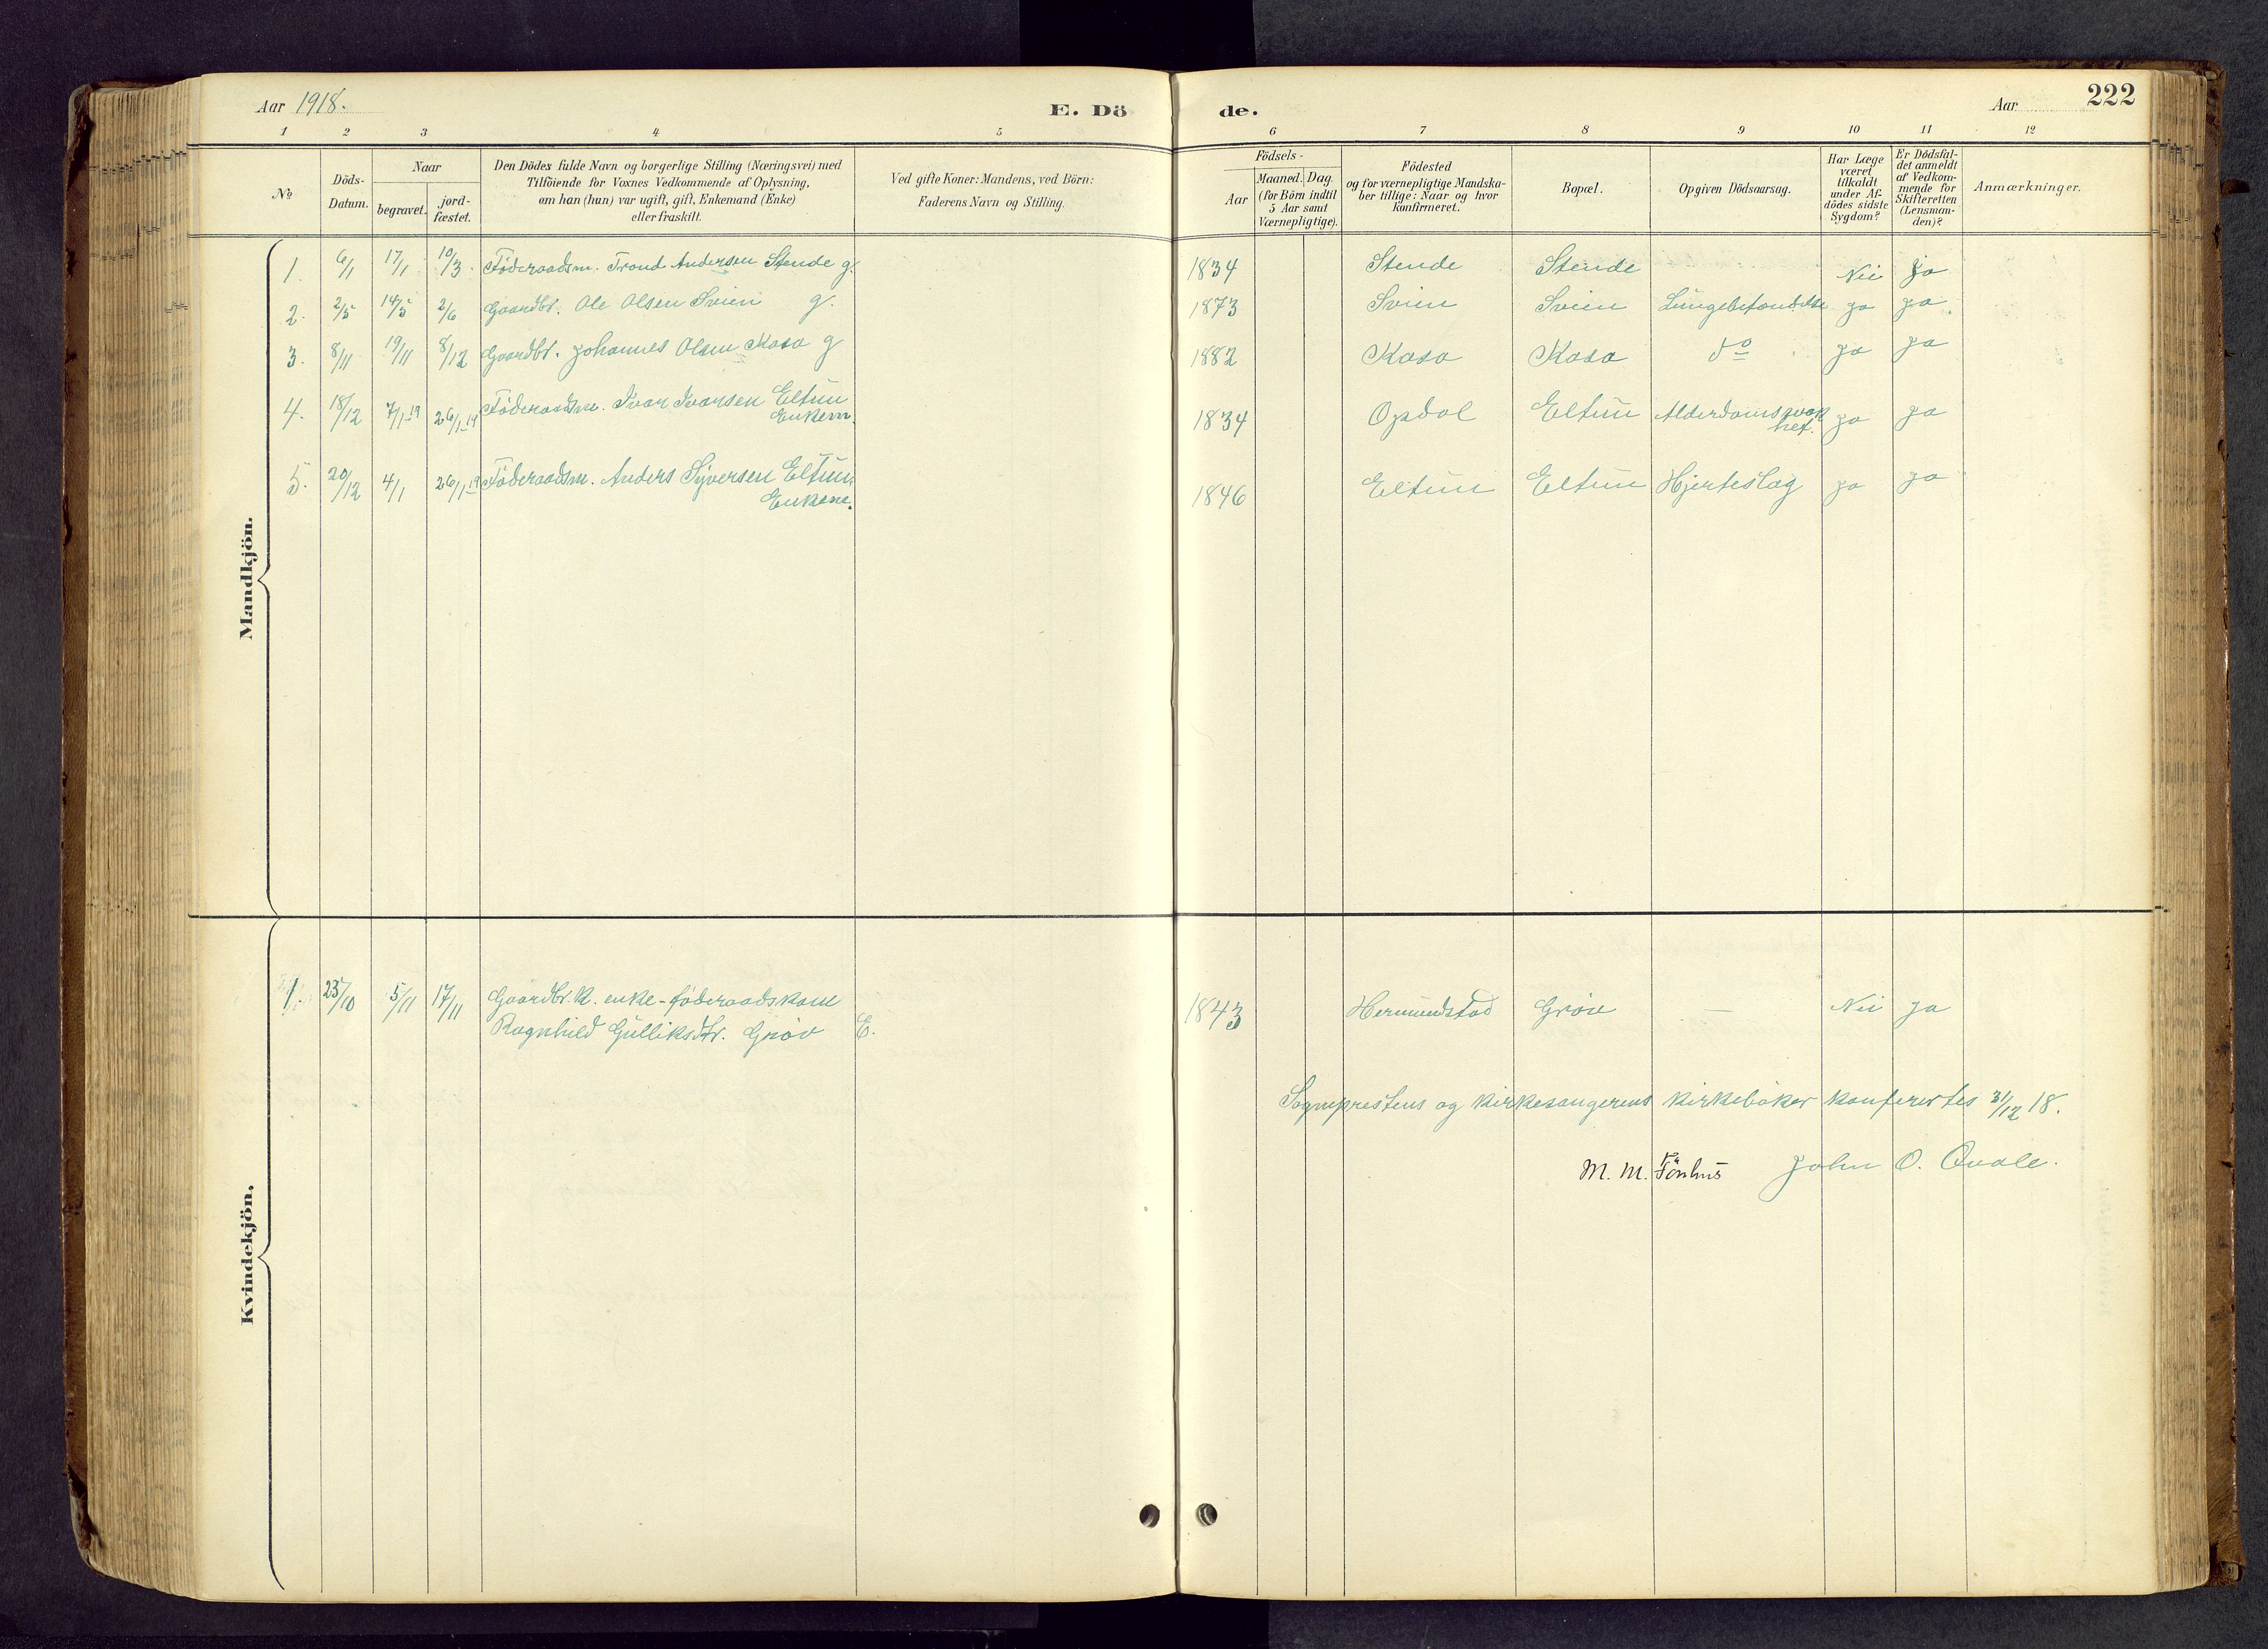 Aar 1918. E. Dö de. Aar 222
1 2 3 4 5 6 7 8 9 10 11 12
No Döds-Datum. Naar begravet. jordfæstet. Den Dödes fulde Navn og borgerlige Stilling (Næringsvei) med
Tilföiende for Voxnes Vedkommende af Oplysning,
om han (hun) var ugift, gift, Enkemand (Enke)
eller fraskilt.
Ved gifte Koner: Mandens, ved Börn:
Faderens Navn og Stilling.
Födsels-
Aar Maaned. Dag.
(for Börn indtil
5 Aar samt
Værnepligtige).
Födested
og for værnepligtige Mandska-
ber tillige: Naar og hvor
konfirmeret.
Bopæl.
Opgiven Dödsaarsag.
Har Læge
været
tilkaldt
under Af-
dödes sidste
Sygdom?
Er Dödsfal-
det anmeldt
af Vedkom-
mende for
Skifteretten
(Lensman-
den)?
Anmærkninger.
Mandkjön.
1. 6/1 17/1 10/3. Föderaadsm. Trond Andersen Stende g. 1834 Stende Stende Nei ja
2. 2/5 14/5 2/6 Gaardbr. Ole Olsen Svien g. 1873 Svien Svien Lungebetændelse ja ja.
3. 8/11 19/11 8/12 Gaardbr. Johannes Olsen Kasa g 1882 Kasa Kasa do ja ja
4. 18/12 7/1 19 26/1 19 Föderaadsm. Ivar Ivarsen Eltun
Enkem. 1834 Opdal Eltun Alderdomssvak
het. ja ja
5. 20/12 4/1 26/1 19 Föderaadsm. Anders Syversen Eltun,
Enkem. 1846 Eltun Eltun Hjerteslag ja ja
Kvindekjön.
1. 25/10 5/11 17/11 Gaardbr. k. enke-föderaadskone
Ragnhild Gulliksdtr. Gröv E. 1843 Hermundstad Gröv — Nei ja
Sogneprestens og kirkesangerens kirkebøker konfertes 31/12 18.
M. M. Fönhus John O. Qvale.